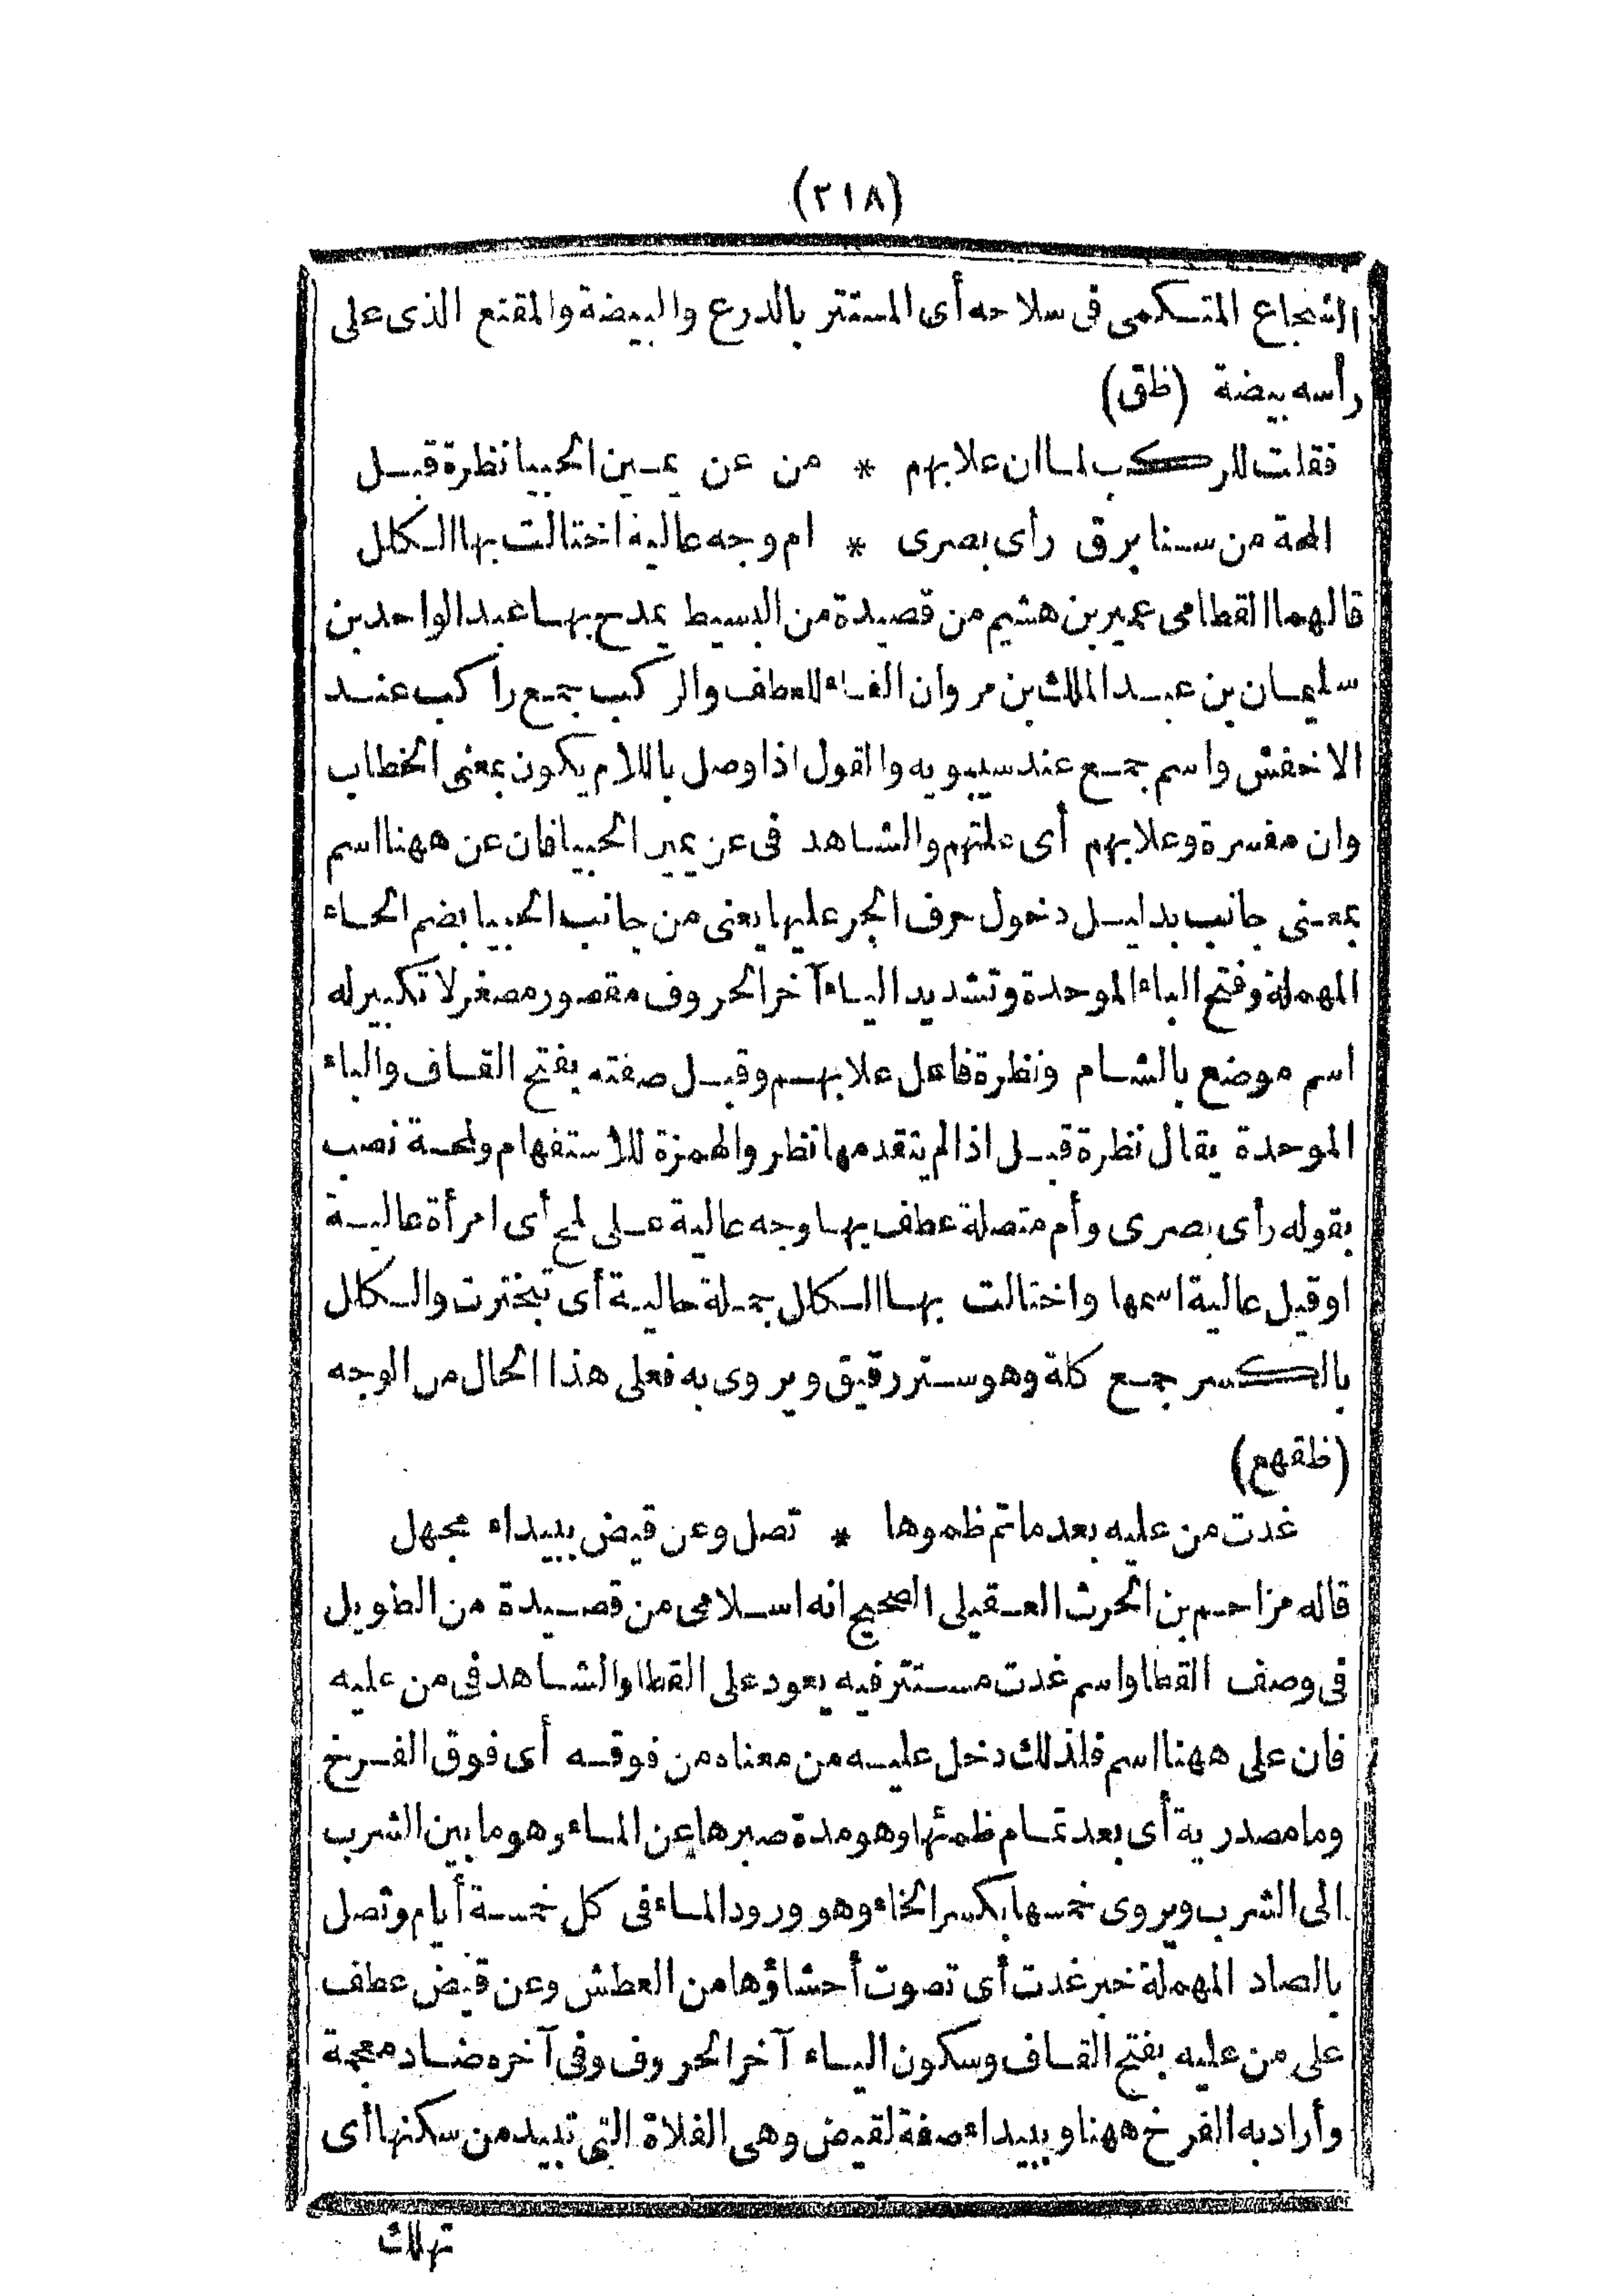 (٢١٨)
الشجاع المتكمى فى سلاحه أى المستتر بالدرع والبيضة والمقنع الذى على
رأسه بيضة (ظق)
فقلت للركب لما ان علا بهم * من عن يمين الحبيا نظرة قبل
المحة من سنا برق رأى بصرى * ام وجه عالية اختالت بها الكلل
قالهما القطامى عمير بن هشيم من قصيدة من البسيط يمدح بها عبد الواحد بن
سليمان بن عبد الملك بن مروان الفاء للعطف والركب جمع راكب عند
الاخفش واسم جمع عند سيبويه والقول اذا وصل باللام يكون بمعنى الخطاب
وان مفسرة وعلا بهم أى علتهم والشاهد فى عن يمين الحبيا فان عن ههنا اسم
بمعنى جانب بدليل دخول حرف الجر عليها يعنى من جانب الحبيا بضم الحاء
المهملة وفتح الباء الموحدة وتشديد الياء آخر الحروف مقصور مصغر لا تكبير له
اسم موضع بالشام ونظرة فاعل علا بهم وقبل صفته بفتح القاف والباء
الموحدة يقال نظرة قبل اذا لم يتقدمها نظر والهمزة للاستفهام ولمحة نصب
بقوله رأى بصرى وأم متصلة عطف بها وجه عالية على لمح أى امرأة عالية
او قيل عالية اسمها واختالت بها الكلل جملة حالية أى تبخترت والكلل
بالكسر جمع كلة وهو ستر رقيق ويروى به فعلى هذا الحال من الوجه
(ظقهع)
غدت من عليه بعد ما تم ظموها * تصل وعن قيض ببيداء مجهل
قاله مزاحم بن الحرث العقيلى الصحيح انه اسلامى من قصيدة من الطويل
فى وصف القطا واسم غدت مستتر فيه يعود على القطا والشاهد فى من عليه
فان على ههنا اسم فلذلك دخل عليه من معناه من فوقه أى فوق الفرخ
وما مصدرية أى بعد تمام ظمئها وهو مدة صبرها عن الماء وهو ما بين الشرب
الى الشرب ويروى خمسها بكسر الخاء وهو ورود الماء فى كل خمسة أيام وتصل
بالصاد المهملة خبر غدت أى تصوت أحشاؤها من العطش وعن قيض عطف
على من عليه بفتح القاف وسكون الياء آخر الحروف وفى آخره ضاد معجمة
وأراد به الفرخ ههنا وببيداء صفة لقيض وهى الفلاة التى تبيد من سكنها أى
تهلك